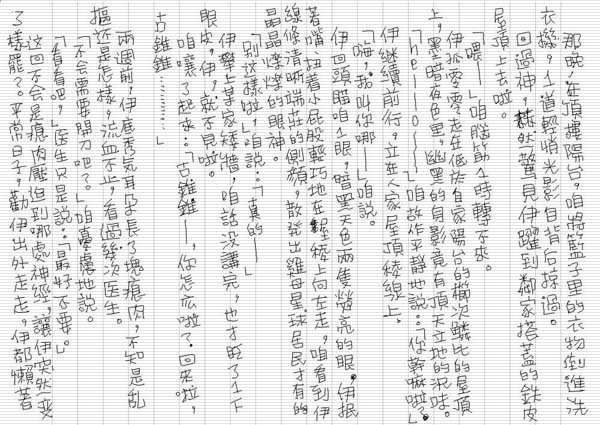 那晚，在頂樓陽台，咱將籃子里的衣物倒進洗
衣機，1道輕悄光影自背后掠過。
回過神，赫然驚見伊躍到鄰家搭蓋的鉄皮
屋頂上去啦。
「喂——」咱腦筋1時轉不來。
伊孤零零走在低於自家陽台的櫛次鱗比的屋頂
上，黑暗夜色里，幽黑的身影竟有頂天立地的況味。
「hello——」咱故作平靜地說：「你幹嘛啦？」
伊繼續前行，立在人家屋頂稜線上。
「嗨，我叫你哪—」咱說。
伊回頭瞄咱1眼，暗黑天色兩隻螢亮的眼，伊抿
著嘴，扭着小屁股輕巧地在稜線上向左走，咱看到伊
線條清晰端莊的側顏，散發出維母星球居民才有的
晶晶燦燦的眼神。
「別這樣啦，」咱說：「真的——」
伊攀上某家矮牆，咱話没講完，也才眨了1下
眼皮，伊，就不見啦。
咱嚷了起來：「古錐錐——，你怎広啦？回來啦，
古錐錐…………」
兩週前，伊底秀気耳朶長了塊瘜肉，不知是乱
摳还是怎樣，流血不止，看過幾次医生。
「不会需要開刀吧？」咱憂慮地說。
「看看吧，」医生只是說：「最好不要。」
這回不会是瘜肉壓迫到哪處神經，讓伊突然一変
了樣罷？平常日子，勸伊出外走走，伊都懶著